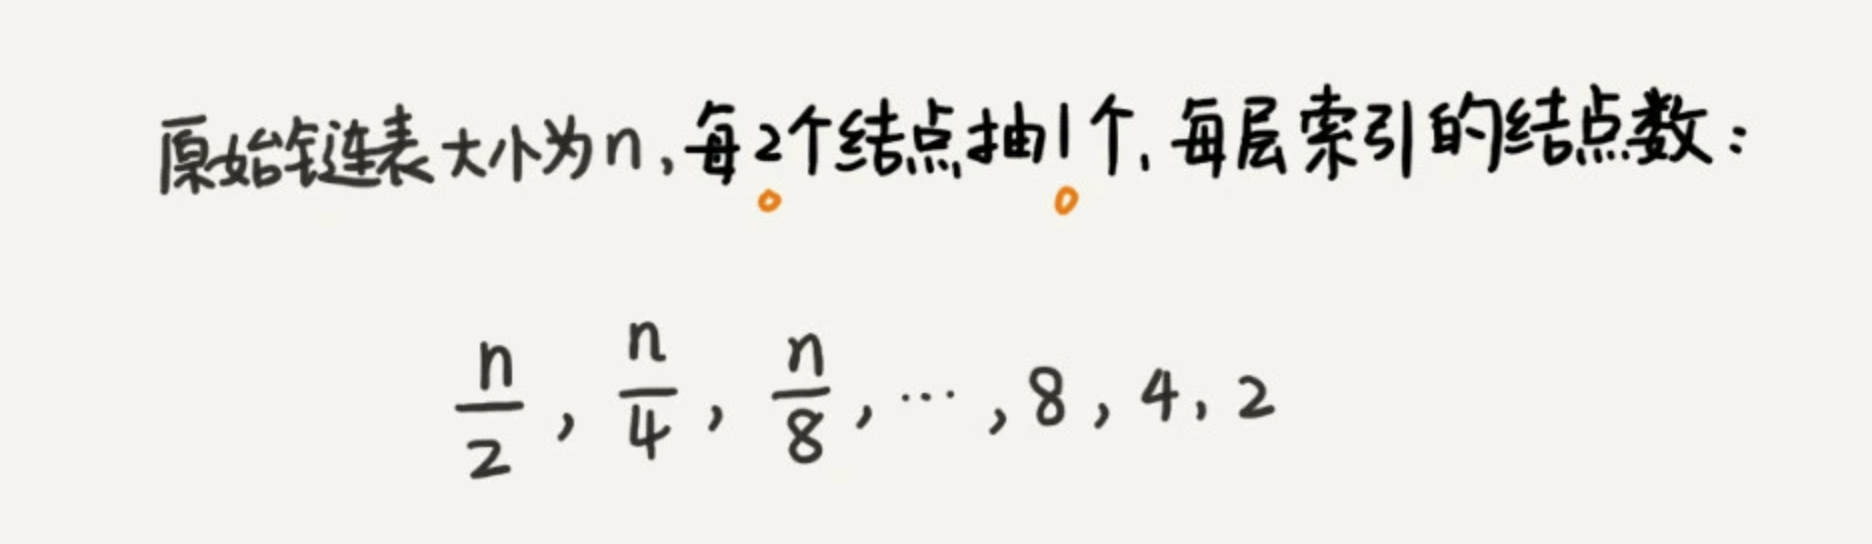 原始链表大小为n,每2个结点抽1个.每层索引的结点数:
n/2, n/4, n/8, ..., 8, 4, 2